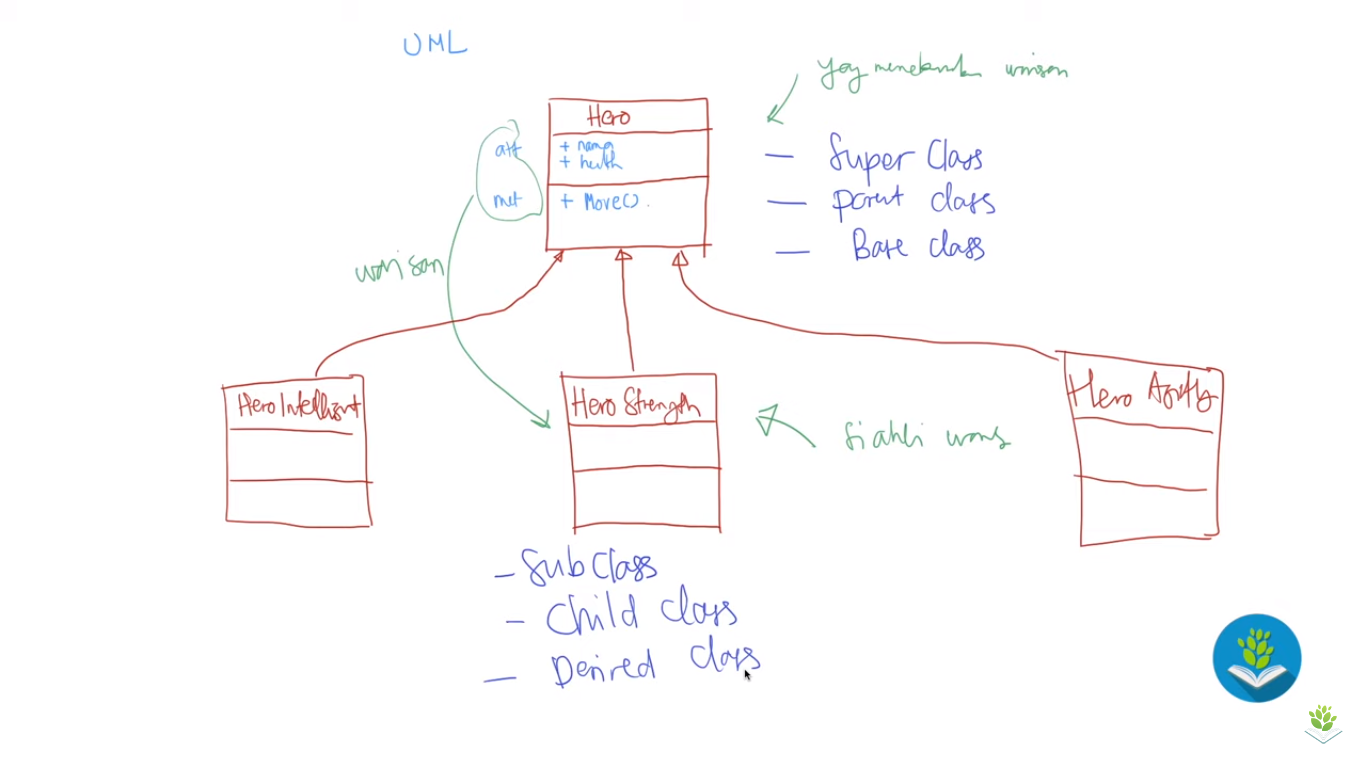 UML
yang menebarkan warisan
Hero
att
+ name
+ health
met
+ Move()
- Super Class
- Parent class
- Base class
warisan
Hero Intelligent
Hero Strength
Hero Agility
si ahli waris
- SubClass
- Child Class
- Derived Class